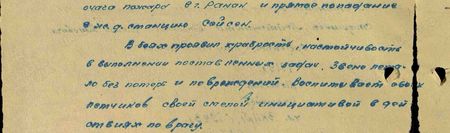 очага пожара в г. Ранан и прямое попадание
в ж.д. станцию Сойсен.
В боях проявил храбрость, настойчивость
в выполнении поставленных задач. Звено лета-
ло без потерь и повреждений. Воспитывает своих
летчиков своей смелой инициативой в дей
ствиях по врагу.